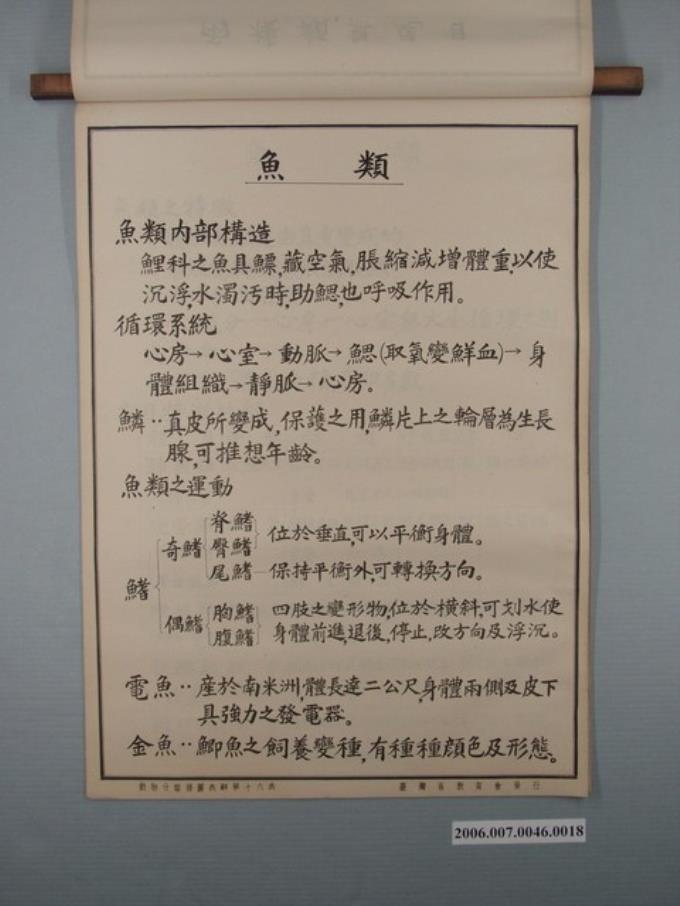 魚類
魚類內部構造
鯉科之魚具鰾,藏空氣,脹縮減增體重,以使
沉浮,水濁污時,助鰓,也呼吸作用。
循環系統
心房→心室→動脈→鰓(取氧變鮮血)→身
體組織→靜脈→心房。
鱗‥真皮所變成,保護之用,鱗片上之輪層為生長
腺,可推想年齡。
魚類之運動
鰭 奇鰭 脊鰭 臀鰭 位於垂直,可以平衡身體。
尾鰭—保持平衡外,可轉換方向。
偶鰭 胸鰭 腹鰭 四肢之變形物,位於橫斜,可划水使
身體前進,退後,停止,改方向及浮沉。
電魚‥產於南米洲,體長達二公尺,身體兩側及皮下
具強力之發電器。
金魚‥鯽魚之飼養變種,有種種顏色及形態。
動物分類掛圖 第十六 臺灣省教育會發行
2006.007.0046.0018